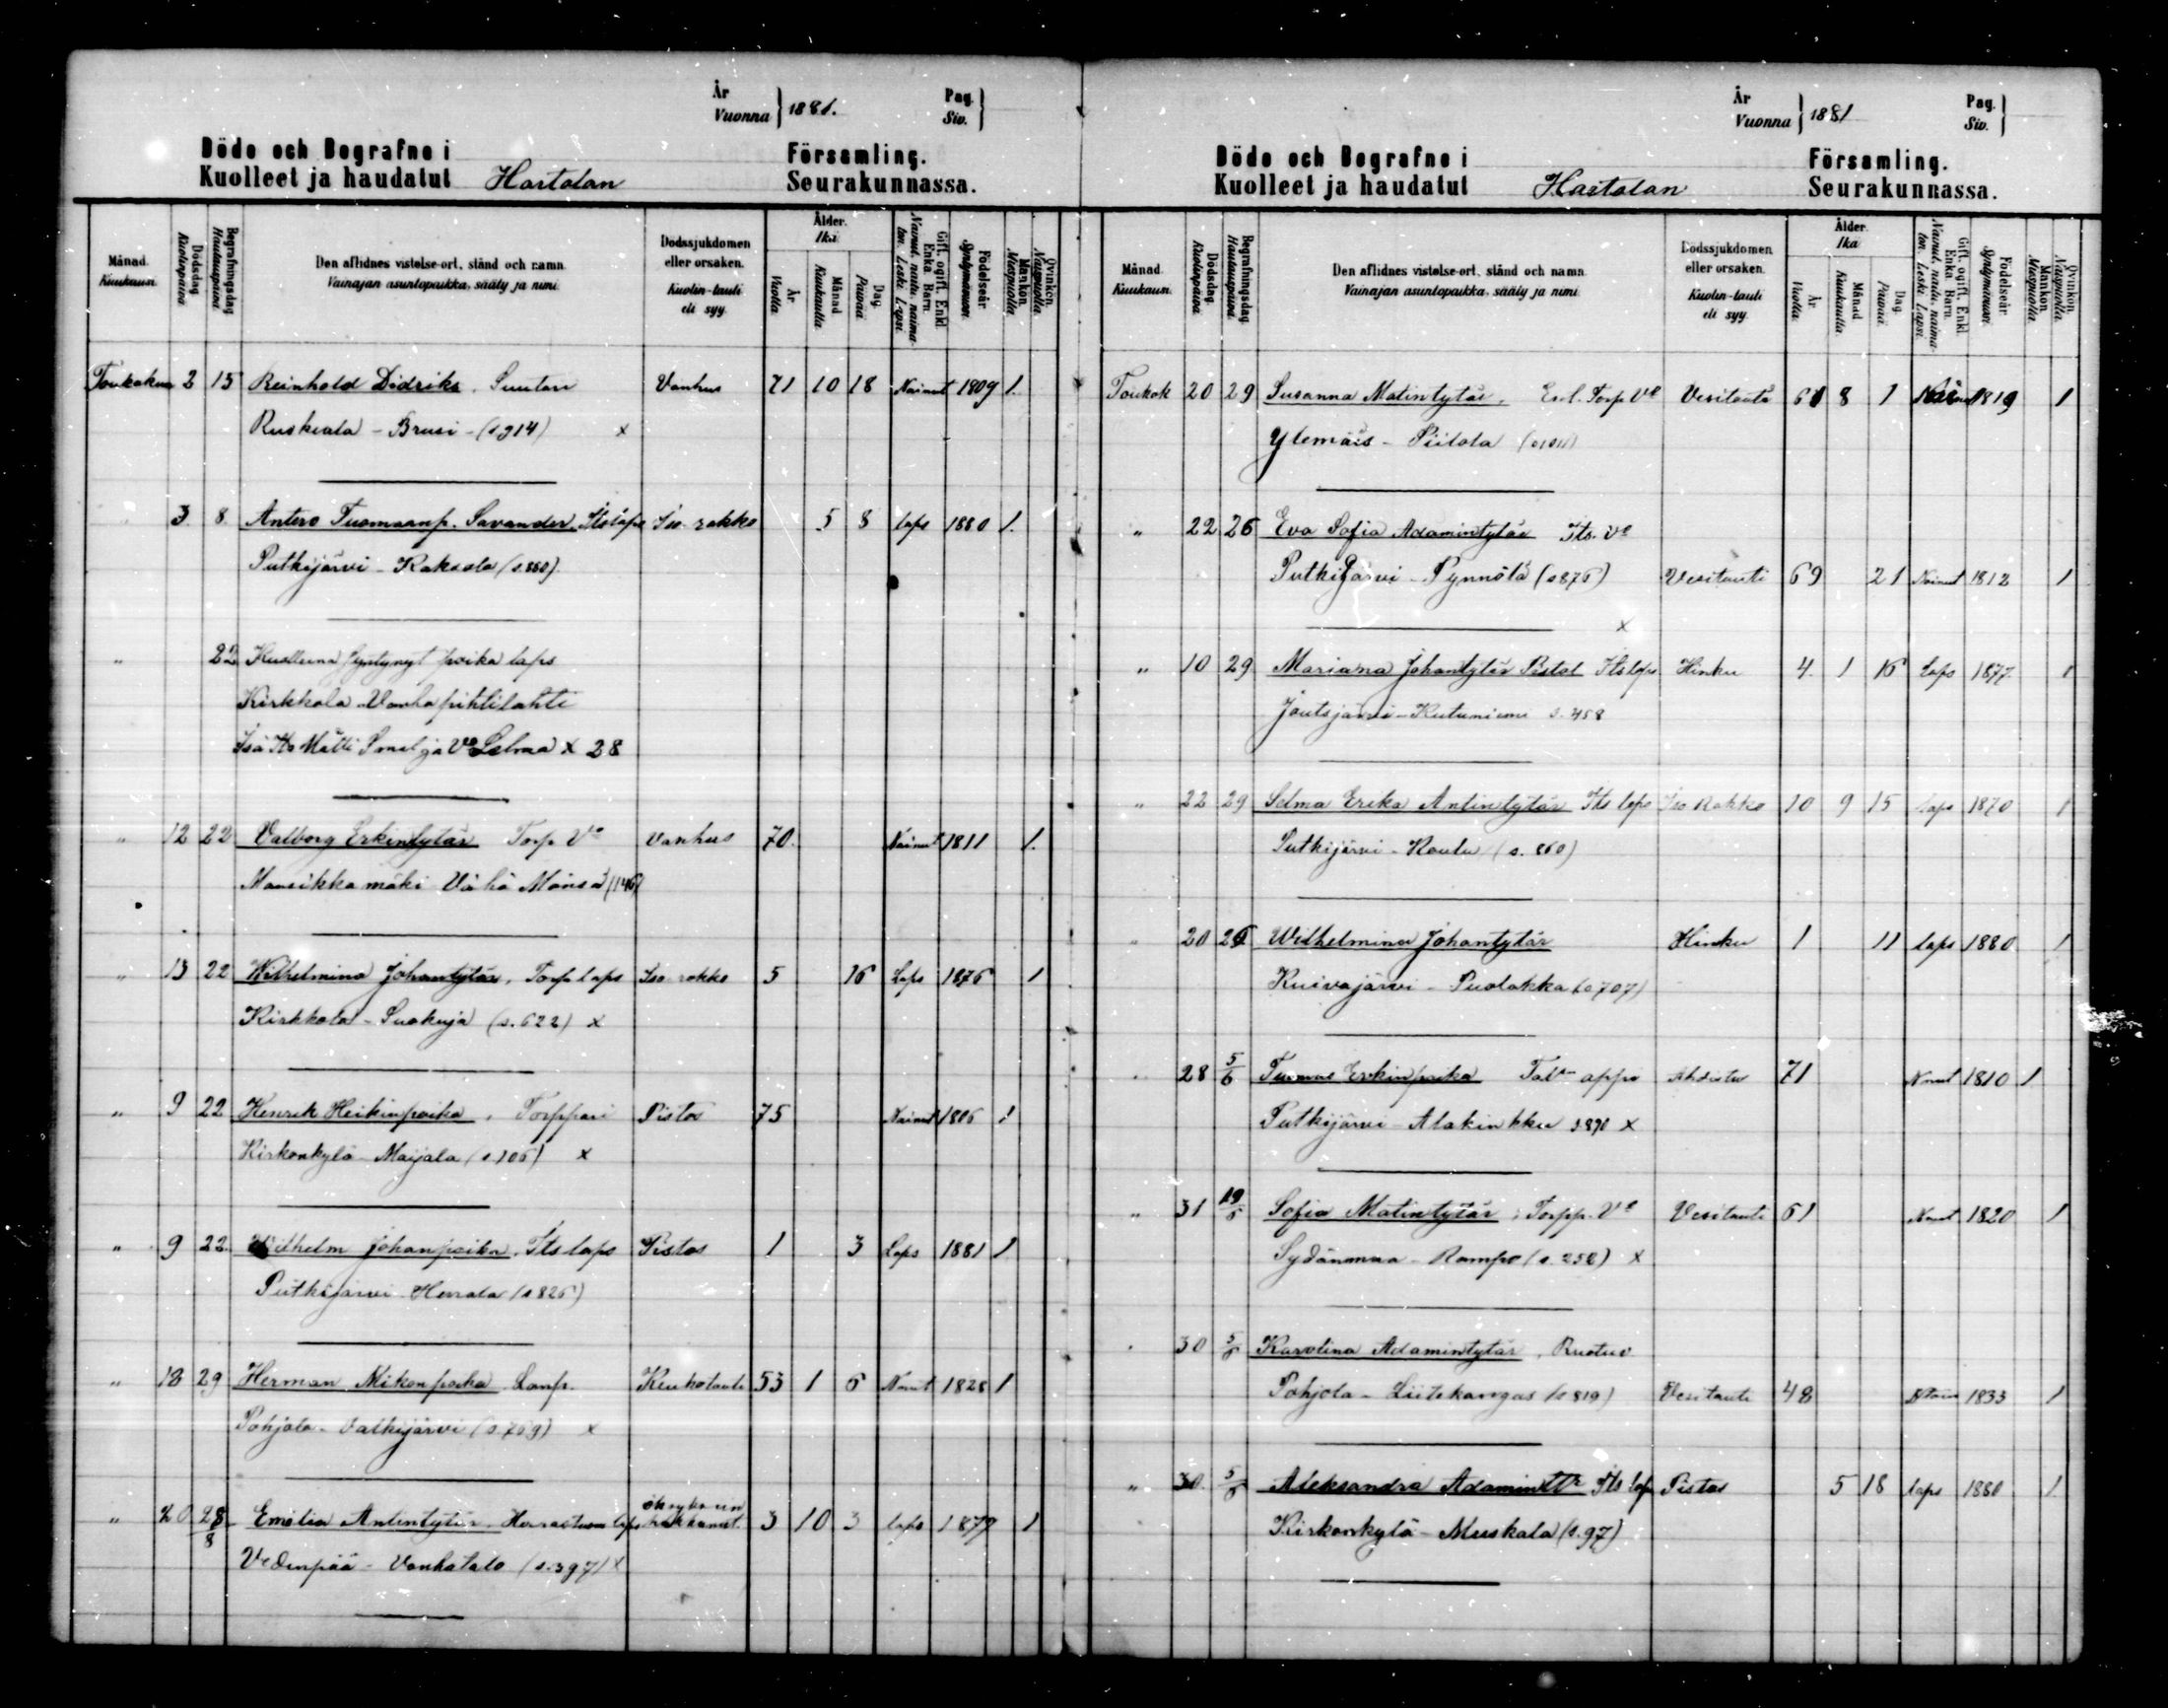 År
Vuonna } 1881.
Pag.
Siv. }
Döde och Begrafne i
Kuolleet ja haudatut Hartolan
Församling.
Seurakunnassa.
Månad.
Kuukausi.
Dödsdag
Kuolinpäivä
Begrafningsdag
Hautauspäivä
Den aflidnes vistelse-ort, stånd och namn.
Vainajan asuntopaikka, sääty ja nimi.
Dödssjukdomen
eller orsaken.
Kuolin-tauti
eli syy.
Ålder.
Ikä
År
Vuotta
Månad
Kuukautta
Dag
Päivää
Gift, ogift, Enkl.
Enka. Barn.
Nainut, naitu, naima-
ton. Leski. Lapsi.
Födelseår
Syntymävuosi
Mankön.
Miespuolia
Qvinkön.
Naispuolia
Toukokuu 2 15 Reinhold Didriks. Suutari Vanhus 71 10 18 Nainut 1809 1.
Ruskeala - Brusi - (s 914) x
3 8 Antero Tuomaanp. Savander Itslaps Iso rokko 5 8 laps 1880 1.
Putkijärvi - Raksala (s. 860)
" 22 Kuolleena syntynyt poika laps
Kirkkola - Vanhapihtilahti
Isä Its Matti Smal ja Vo Selma x 28
" 12 22 Valborg Erkintytär Torp Vo Vanhus 70. Nainut 1811 1.
Mansikkamäki Vähä Mänsä (146)
" 13 22 Wilhelmina Johantytär, Torp. laps Iso rokko 5 16 Laps 1876 1
Kirkkola - Suokuja (s. 622) x
" 9 22 Henrik Heikinpoika, Torppari Pistos 75 Nainut 1806 1
Kirkonkylä - Maijala (s. 106) x
" 9 22 Wilhelm Johanpoika, Its laps Pistos 1 3 Laps 1881 1
Putkijärvi - Herrala (s 826)
" 18 29 Herman Mikonpoika Lamp. Keuhotauti 53 1 6 Nnut 1828 1
Pohjola - Valkijärvi (s. 769) x
" 20 28/8 Emilia Antintytär laps hukkunut. 3 10 3 laps 1879 1
Vedenpää - Vanhatalo (s. 397) x
År
Vuonna } 1881
Pag.
Siv. }
Döde och Begrafne i
Kuolleet ja haudatut Hartolan
Församling.
Seurakunnassa.
Månad.
Kuukausi.
Dödsdag.
Kuolinpäivä.
Begrafningsdag
Hautauspäivä.
Den aflidnes vistelse-ort, stånd och namn.
Vainajan asuntopaikka, sääty ja nimi.
Dödssjukdomen
eller orsaken.
Kuolin-tauti
eli syy.
Ålder.
Ikä
År
Vuotta
Månad
Kuukautta
Dag
Päivää
Gift, ogift, Enkl.
Enka. Barn.
Nainut, naitu, naima-
ton. Leski. Lapsi.
Födelseår
Syntymävuosi
Mankön.
Miespuolia
Qvinkön.
Naispuolia
Toukok 20 29 Susanna Matintytär, Torp Vo Vesitauti 61 8 1 1819 1
Ylemäis - Piilola
" 22 26 Eva Sofia Adamintytär Its. Vo
Putkijärvi - Pynnölä (s 876) Vesitauti 69 21 Nainut 1812 1
x
" 10 29 Mariana Johantytär Pistol Its laps Hinku 4. 1 16 laps 1877. 1
Joutsjärvi - Kutuniemi s. 458
" 22 29 Selma Erika Antintytär Its laps Iso Rokko 10 9 15 laps 1870 1
Putkijärvi - Koulu (s. 860)
" 20 26 Wilhelmina Johantytär Hinku 1 11 laps 1880 1
Kuivajärvi - Puolakka (s 707)
" 28 5/6 Tuomas Erkinpoika Tal appi Ahdistus 71 Nnut 1810 1
Putkijärvi - Alakinkku s 890 x
" 31 19/6 Sofia Matintytär, Torpp. Vo Vesitauti 61 Nnut 1820 1
Sydänmaa - Rampo (s. 258) x
" 30 5/6 Karolina Adamintytär, Ruotuv
Pohjola - Liitekangas (s 819) Vesitauti 48 1833 1
" 30. 5/6 Aleksandra Adamintr Its laps Pistos 5 18 laps 1880 1
Kirkonkylä - Muskala (s. 97)